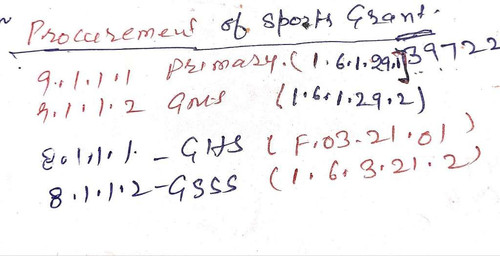 Procurement of sports Grant.
9.1.1.1 primary. (1.6.1.29.1) 39722
9.1.1.2 GMS (1.6.1.29.2)
8.1.1.1. - GHS (F.03.21.01)
8.1.1.2-GSSS (1.6.3.21.2)